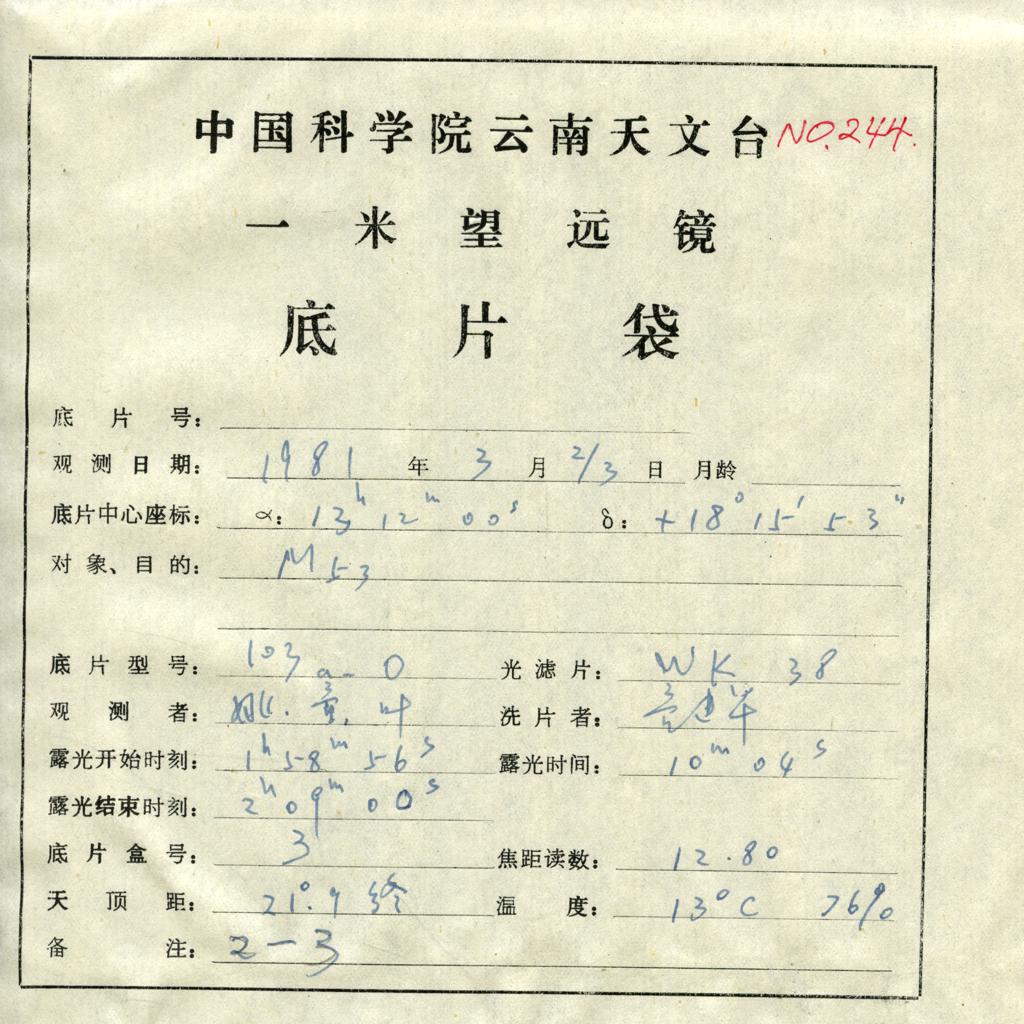 中国科学院云南天文台 NO.244.
一米望远镜
底片袋
底片号:
观测日期: 1981 年 3 月 2/3 日 月龄
底片中心座标: α: 13h 12m 00s δ: +18° 15′ 53″
对象、目的: M53
底片型号: 103a-O 光滤片: WK 38
观测者: 姚. 叶 洗片者:
露光开始时刻: 1h 58m 56s 露光时间: 10m 04s
露光结束时刻: 2h 09m 00s
底片盒号: 3 焦距读数: 12.80
天顶距: 21°.9 终 温度: 13°C 76%
备注: 2-3